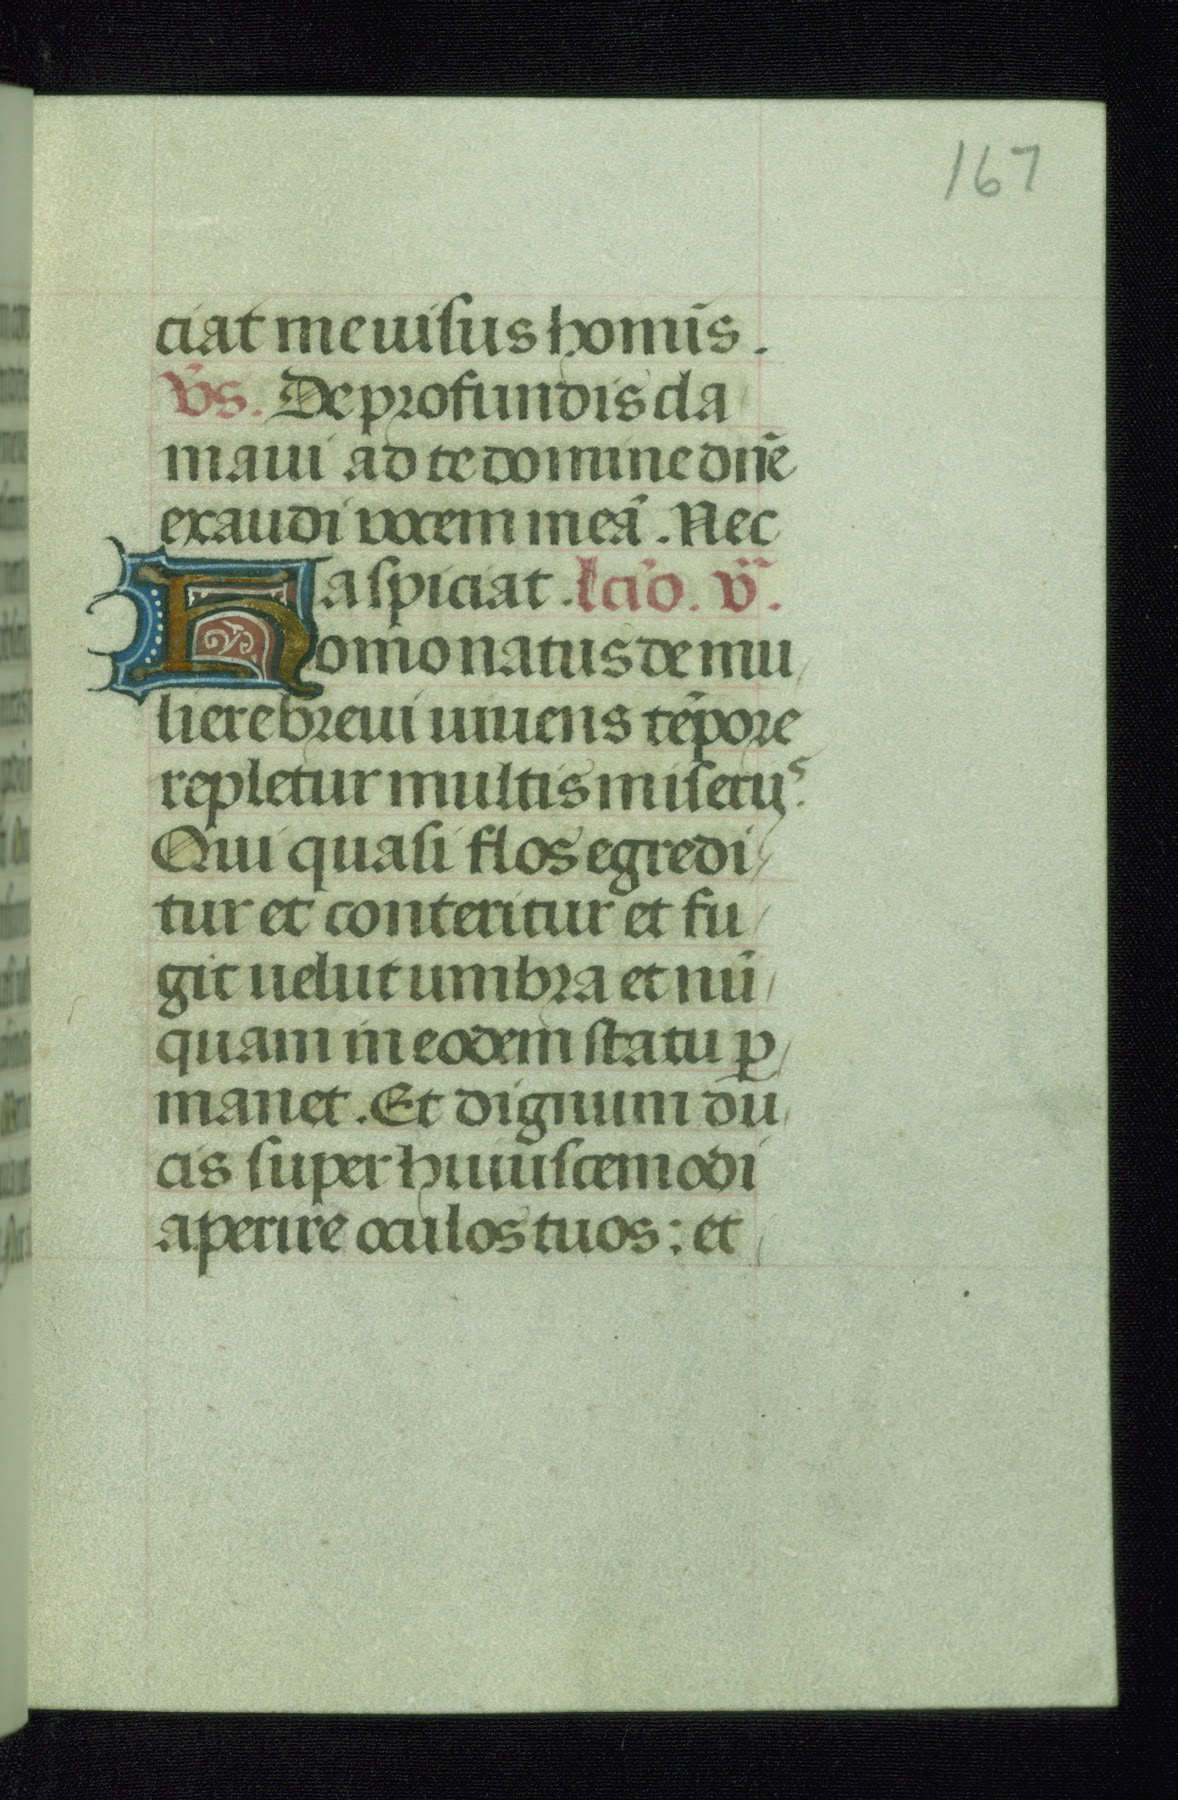 167
ciat me uisus homīs.
v̄s. De profundis cla
maui ad te domine dn̄e
exaudi vocem meā. Nec
aspiciat. lcio. v̄.
Homo natus de mu
liere breui uiuens tēpore
repletur multis miserijs.
Qui quasi flos egredi
tur et conteritur et fu
git uelut umbra et nū
quam in eodem statu ꝑ
manet. Et dignum du
cis super huiuscemodi
aperire oculos tuos: et